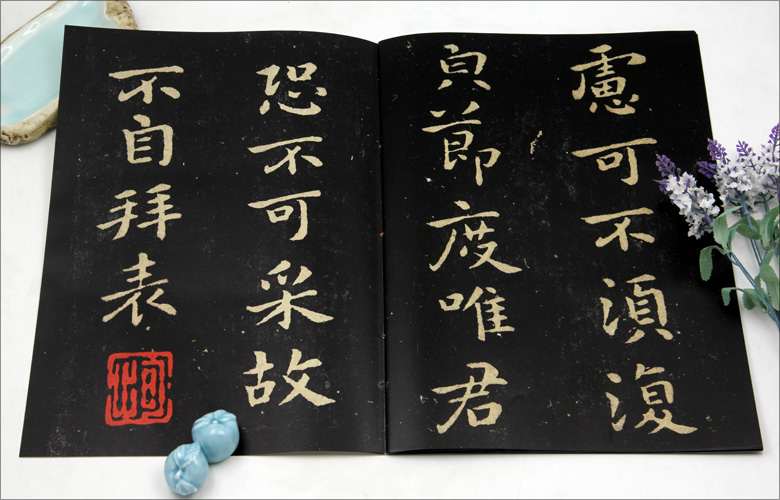 慮可不湏復
節度唯君
恐不可采故
不自拜表